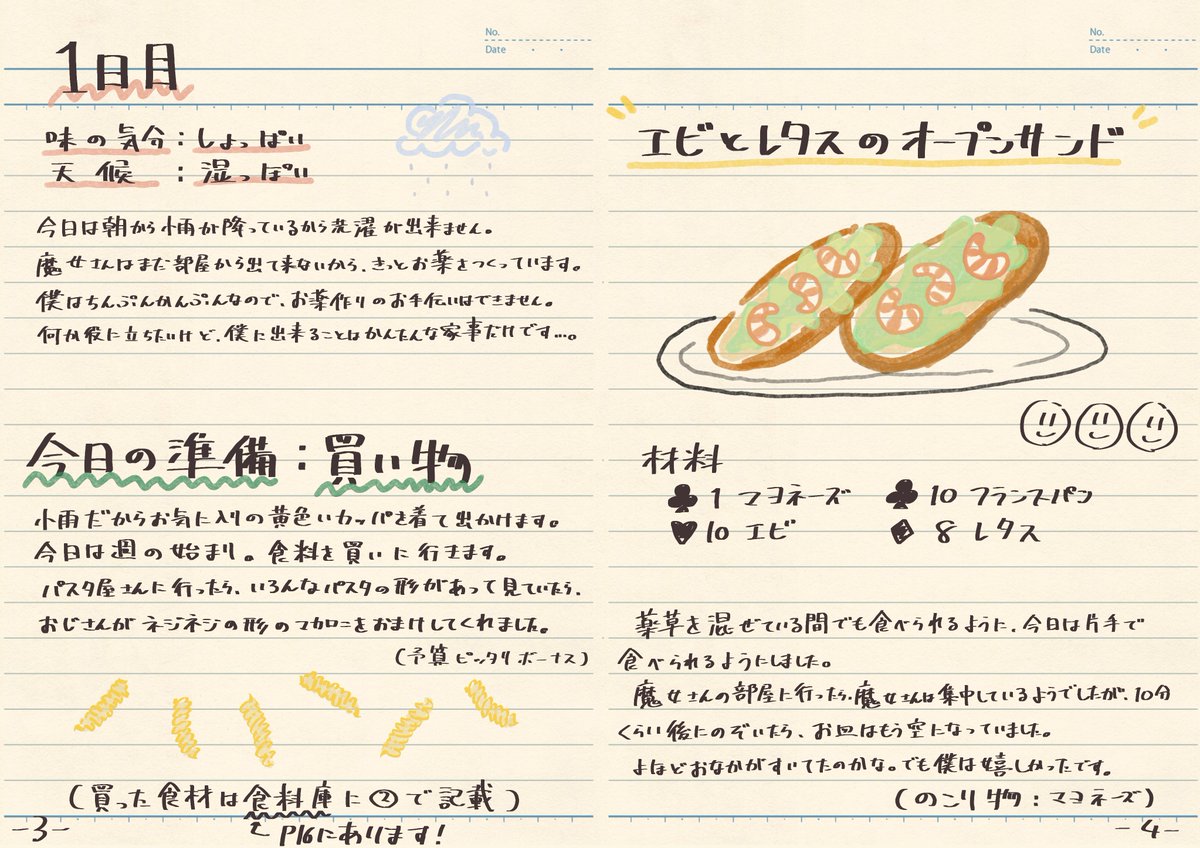 No.
Date
1日目
味の気分：しょっぱい
天候：湿っぽい
今日は朝から小雨が降っているから洗濯が出来ません。
魔女さんはまだ部屋から出て来ないから、きっとお薬をつくっています。
僕はちんぷんかんぷんなので、お薬作りのお手伝いはできません。
何か役に立ちたいけど、僕に出来ることはかんたんな家事だけです…。
今日の準備：買い物
小雨だからお気に入りの黄色いカッパを着て出かけます。
今日は週の始まり。食料を買いに行きます。
パスタ屋さんに行ったら、いろんなパスタの形があって見ていたら、
おじさんがネジネジの形のマカロニをおまけしてくれました。
（予算ピッタリボーナス）
（買った食材は食料庫に②で記載）
P16にあります！
-3-
No.
Date
エビとレタスのオープンサンド
材料
♣1 マヨネーズ ♣10 フランスパン
♥10 エビ ♦8 レタス
薬草を混ぜている間でも食べられるように、今日は片手で
食べられるようにしました。
魔女さんの部屋に行ったら、魔女さんは集中しているようでしたが、10分
くらい後にのぞいたら、お皿はもう空になっていました。
よほどおなかがすいてたのかな。でも僕は嬉しかったです。
（のこり物：マヨネーズ）
-4-